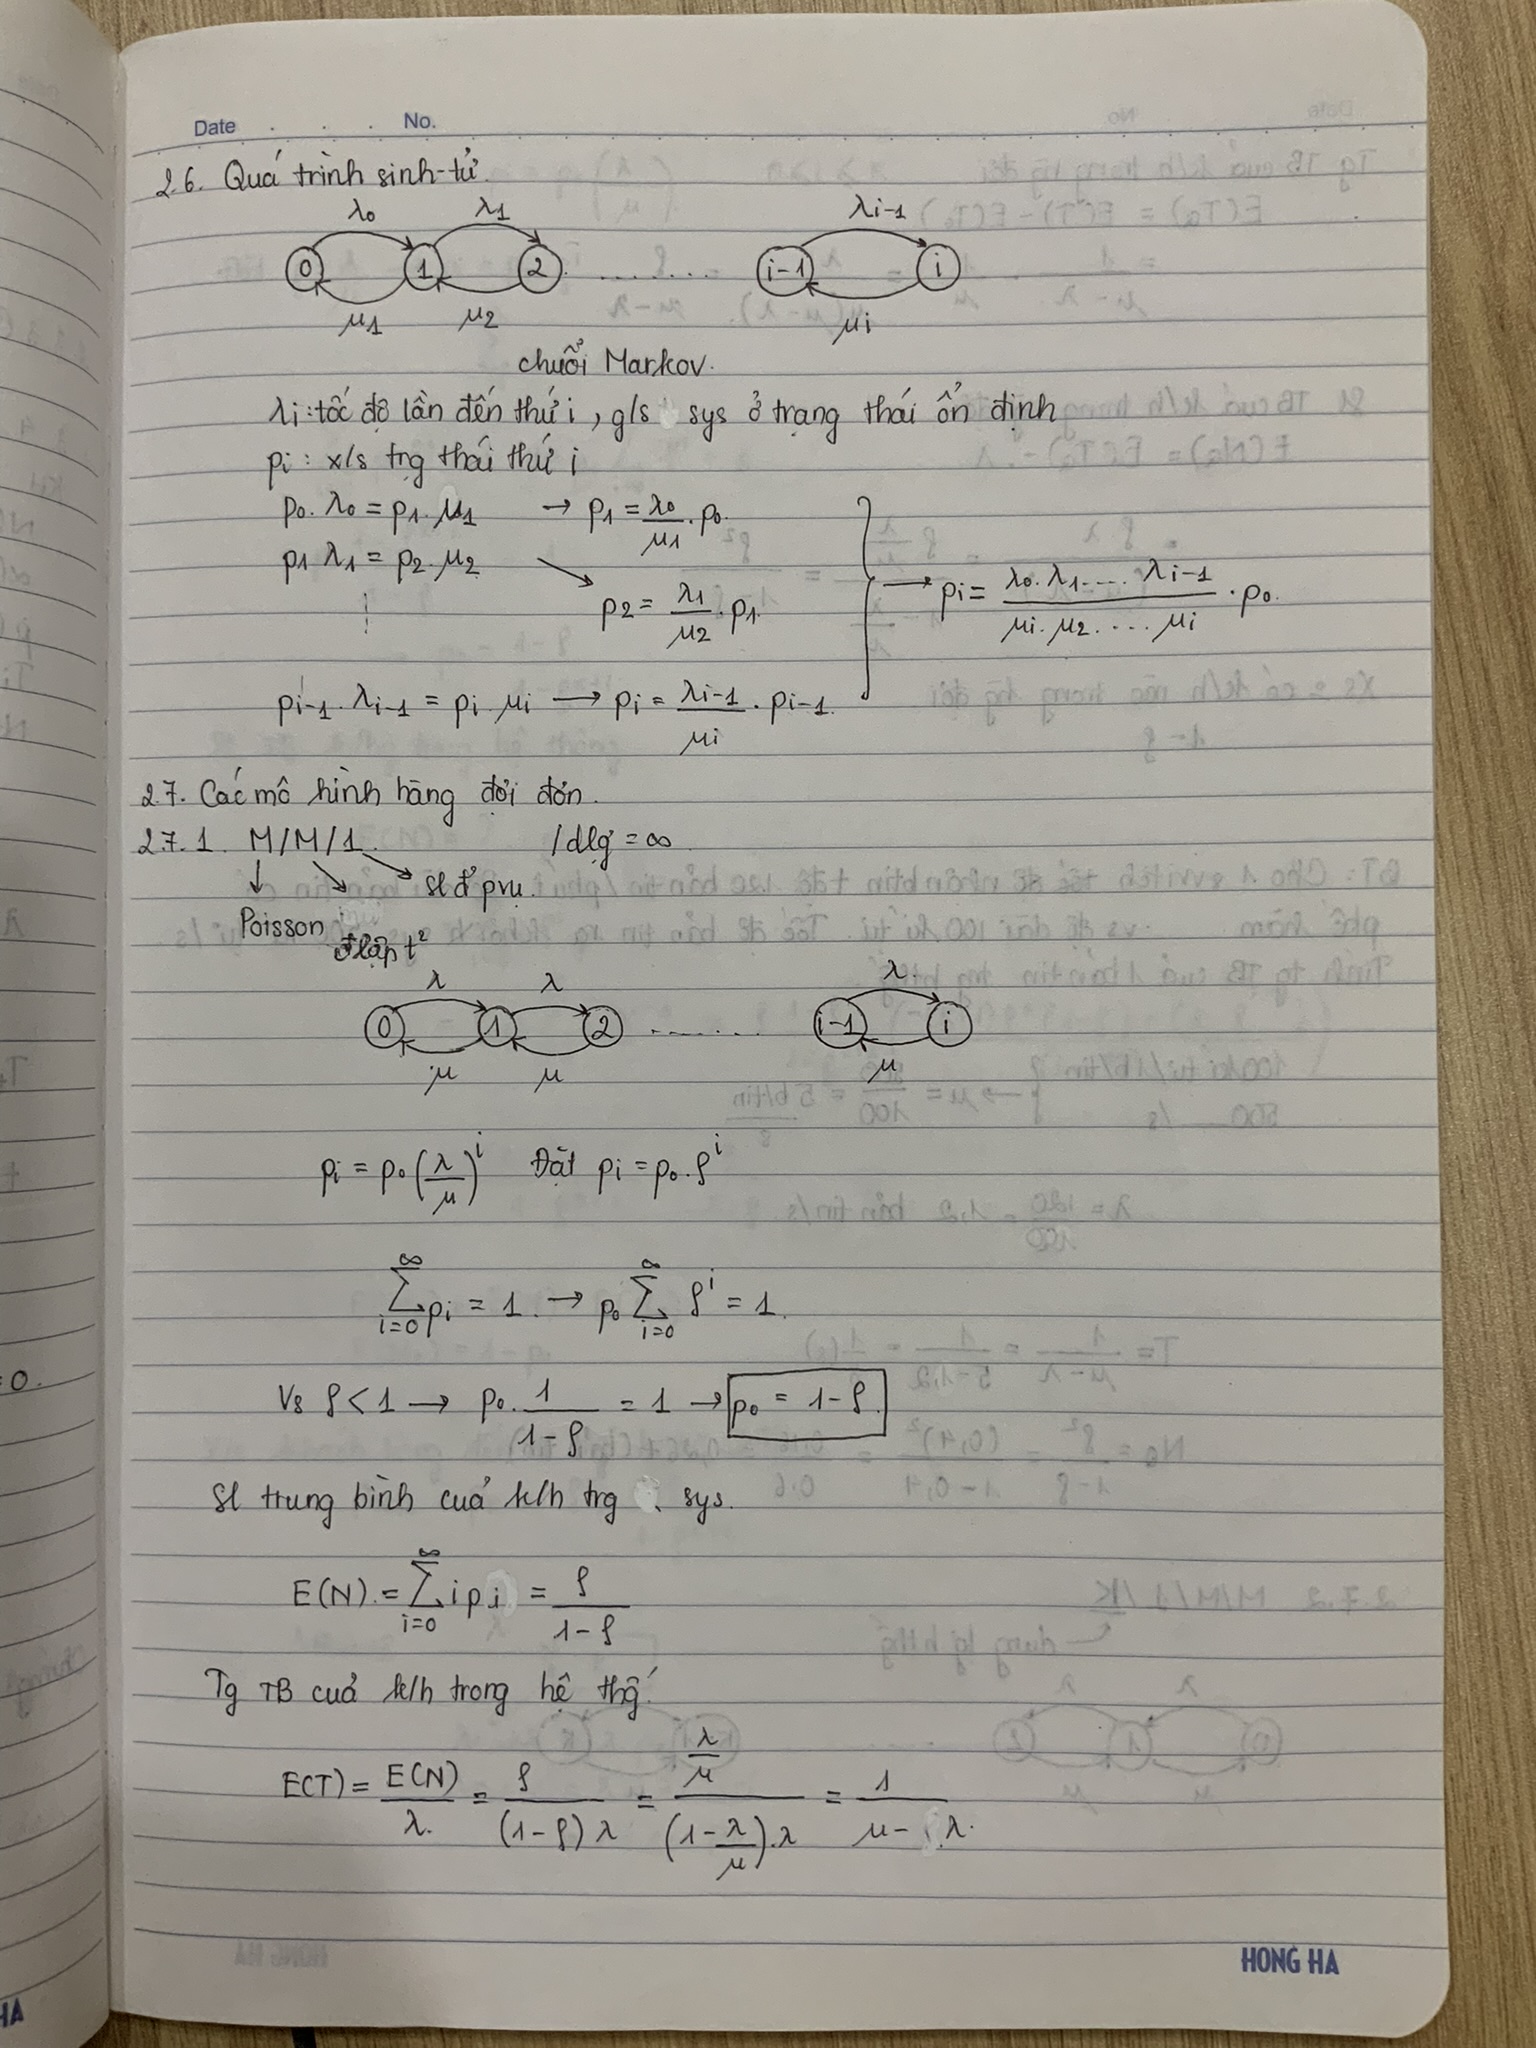 Date . . . No.
2.6. Quá trình sinh-tử.
λ0 λ1 λi-1
0 1 2 ........ i-1 i
μ1 μ2 μi
chuỗi Markov.
λi: tốc độ lần đến thứ i, g/s sys ở trạng thái ổn định
pi: x/s trg thái thứ i
p0. λ0 = p1. μ1 → p1 = λ0/μ1 . p0.
p1 λ1 = p2. μ2 → p2 = λ1/μ2 . p1. } → pi = (λ0. λ1.... λi-1)/(μi. μ2. .... μi) . p0.
pi-1. λi-1 = pi. μi → pi = λi-1/μi . pi-1.
2.7. Các mô hình hàng đợi đơn.
2.7.1. M/M/1. /dlg = ∞
sl đ' pvụ.
Poisson
đlập t²
λ λ λ.
0 1 2 ........ i-1 i
μ μ μ
pi = p0 (λ/μ)^i Đặt pi = p0. ρ^i
∑_{i=0}^{∞} pi = 1. → p0 ∑_{i=0}^{∞} ρ^i = 1.
Vs ρ < 1 → p0. 1/(1-ρ) = 1 → p0 = 1-ρ.
Sl trung bình của k/h trg sys.
E(N). = ∑_{i=0}^{∞} i pi = ρ/(1-ρ)
Tg TB của k/h trong hệ thg'.
E(T) = E(N)/λ. = ρ/((1-ρ) λ) = (λ/μ)/((1-λ/μ).λ) = 1/(μ-λ).
HONG HA